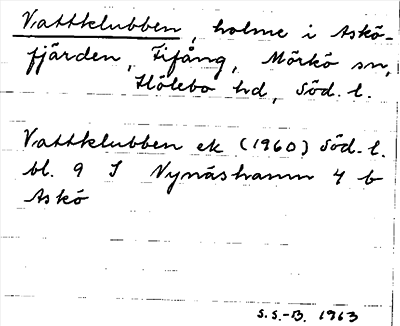 Vattklubben, holme i Askö-
fjärden, Fifång, Mörkö sn,
Hölebo hd, Söd. l.
Vattklubben ek (1960) Söd. l.
bl. 9 I Nynäshamn 4 b
Askö
S.S.-B. 1963